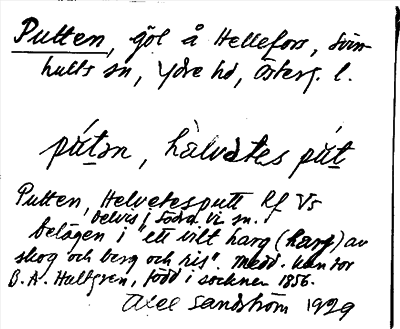 Putten, göl å Hellefors, Svin-
hults sn, Ydre hd, Österg. l.
pút̠ən, hàlvətes pút̠
Putten, Helvetesputt Rf Vs
belägen i "ett vilt harg (harg) av
skog och berg och ris". Medd. kantor
B. A. Hultgren, född i socknen 1856.
Axel Sandström 1929